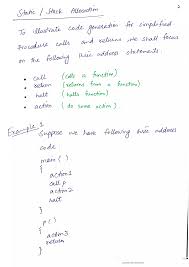 Static / Stack Allocation
To illustrate code generation for simplified
procedure calls and returns we shall focus
on the following three address statements:
• call (calls a function)
• return (returns from a function)
• halt (halts function)
• action (do some action)
Example 1
Suppose we have following three address
code:
main()
{
action1
call p
action2
halt
}
p()
{
action3
return